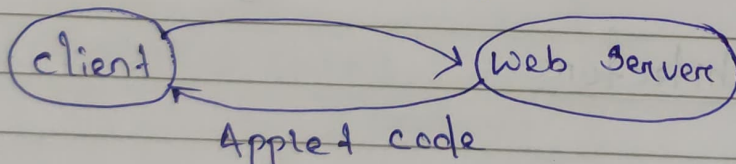 client
Web Server
Applet code